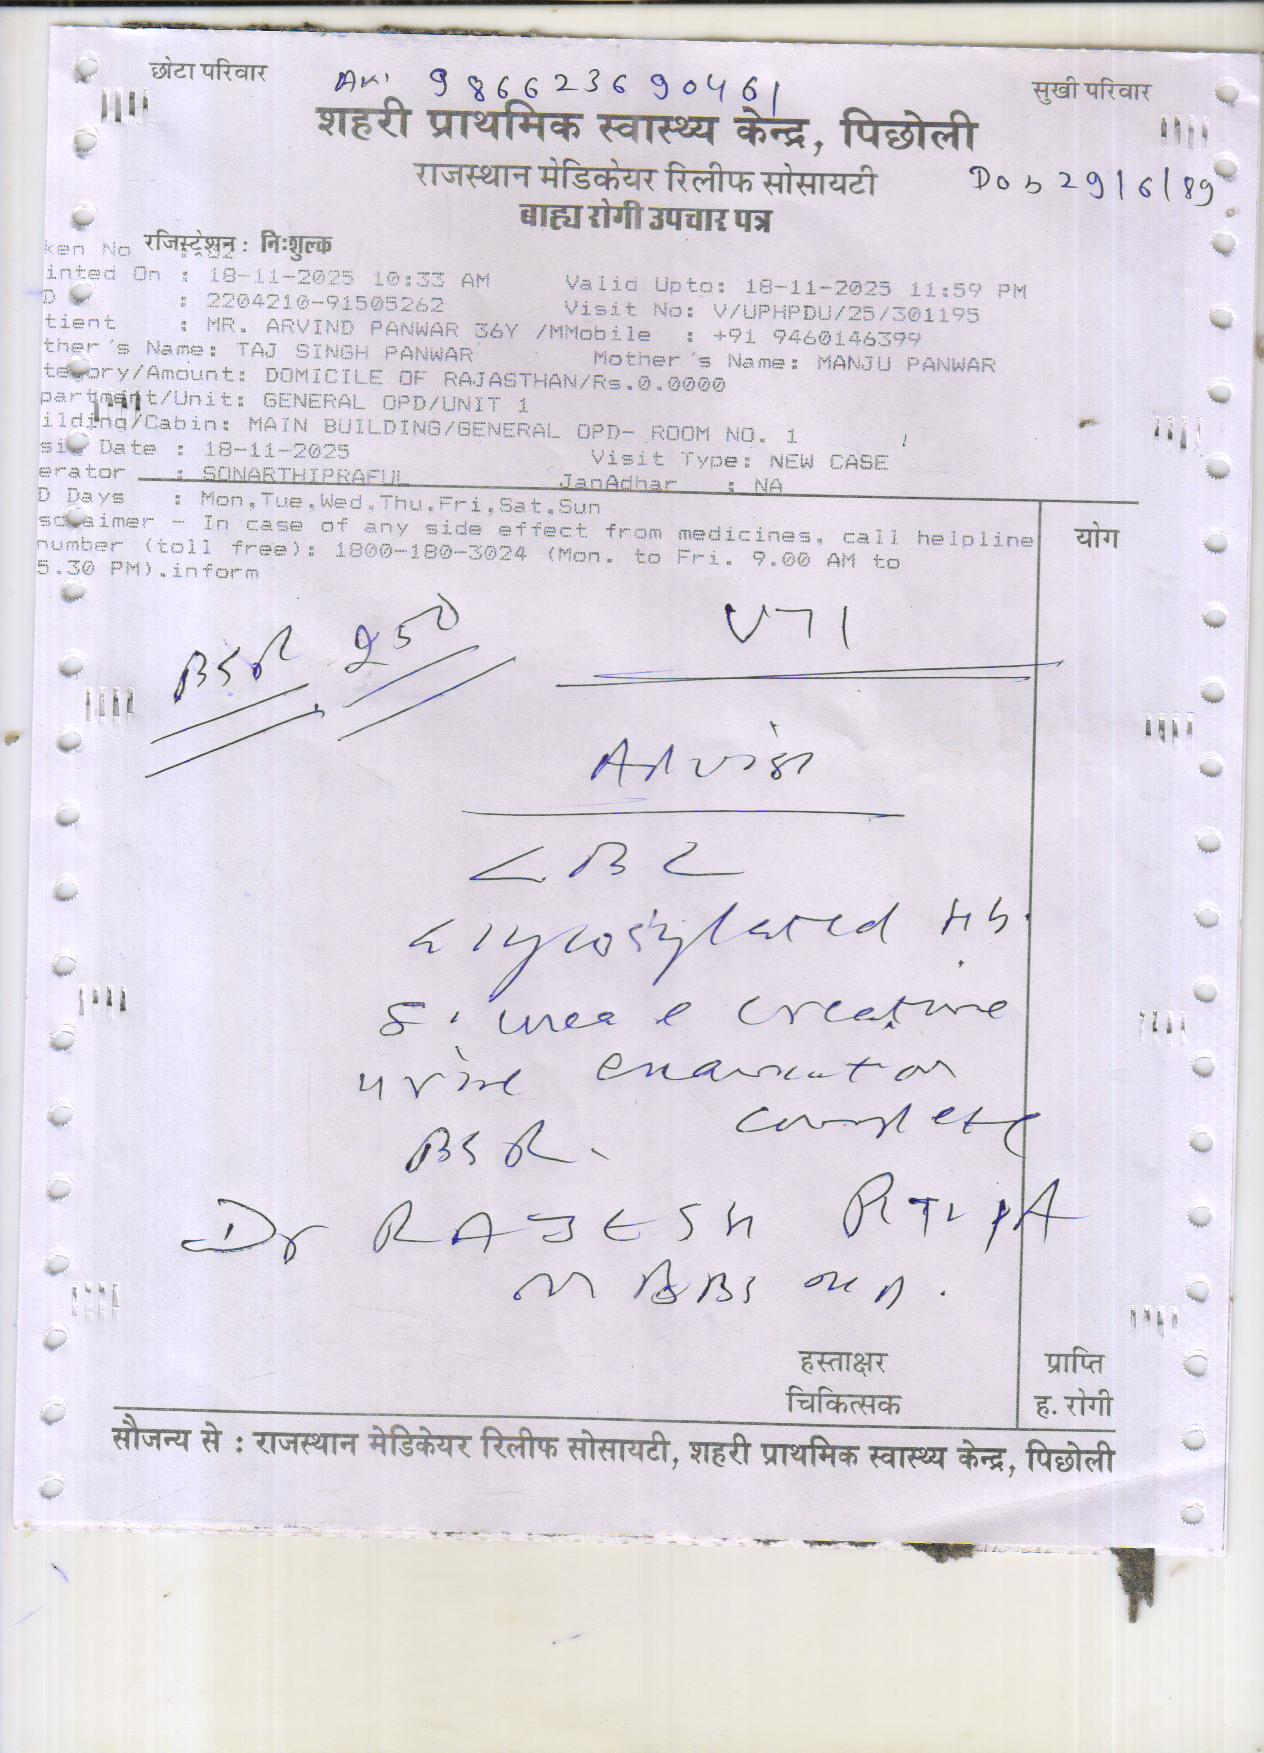 छोटा परिवार
सुखी परिवार
986623690461
शहरी प्राथमिक स्वास्थ्य केन्द्र, पिछोली
राजस्थान मेडिकेयर रिलीफ सोसायटी
DOB 29/6/89
बाह्य रोगी उपचार पत्र
ken No रजिस्ट्रेशन : निःशुल्क
inted On : 18-11-2025 10:33 AM Valid Upto: 18-11-2025 11:59 PM
D : 2204210-91505262 Visit No: V/UPHPDU/25/301195
tient : MR. ARVIND PANWAR 36Y /MMobile : +91 9460146399
ther's Name: TAJ SINGH PANWAR Mother's Name: MANJU PANWAR
tegory/Amount: DOMICILE OF RAJASTHAN/Rs.0.0000
partment/Unit: GENERAL OPD/UNIT 1
ilding/Cabin: MAIN BUILDING/GENERAL OPD- ROOM NO. 1
Date : 18-11-2025 Visit Type: NEW CASE
erator : SONARTHIPRAFUL JanAdhar : NA
D Days : Mon,Tue,Wed,Thu,Fri,Sat,Sun
sclaimer - In case of any side effect from medicines, call helpline
number (toll free): 1800-180-3024 (Mon. to Fri. 9.00 AM to
5.30 PM).inform
योग
BSR 250
UTI
Advise
CBC
Glycosylated Hb.
S. urea e creatine
urine examination
complete
BSR.
Dr RAJESH
MBBS
हस्ताक्षर
चिकित्सक
प्राप्ति
ह. रोगी
सौजन्य से : राजस्थान मेडिकेयर रिलीफ सोसायटी, शहरी प्राथमिक स्वास्थ्य केन्द्र, पिछोली